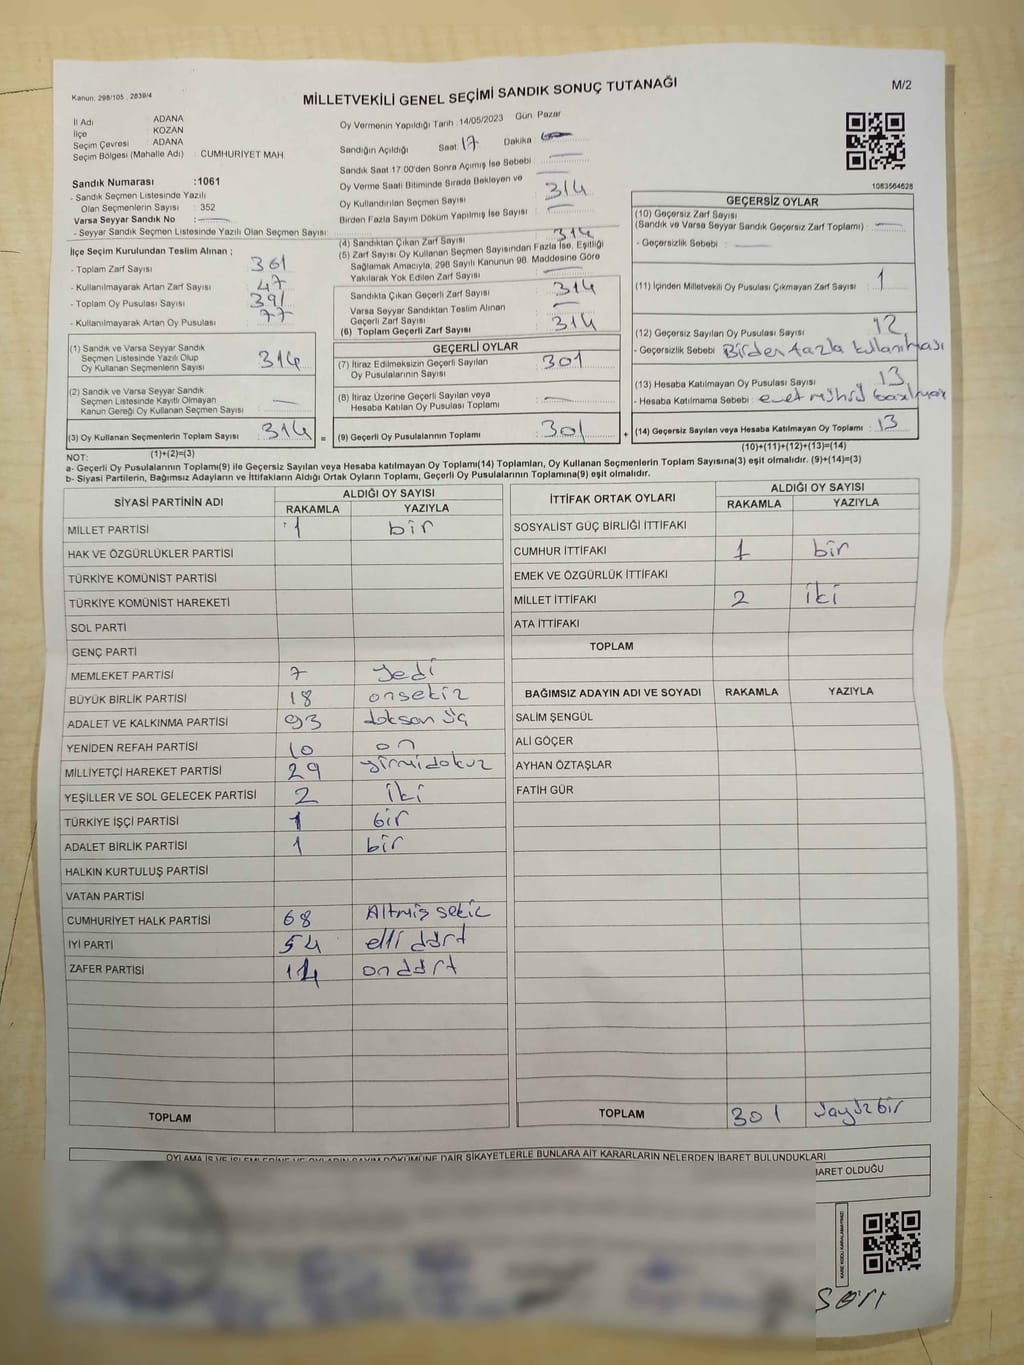 Kanun: 298/105 , 2839/4
MİLLETVEKİLİ GENEL SEÇİMİ SANDIK SONUÇ TUTANAĞI
M/2
İl Adı ADANA
İlçe KOZAN
Seçim Çevresi ADANA
Seçim Bölgesi (Mahalle Adı) : CUMHURİYET MAH
Sandık Numarası :1061
- Sandık Seçmen Listesinde Yazılı
Olan Seçmenlerin Sayısı : 352
Varsa Seyyar Sandık No :
- Seyyar Sandık Seçmen Listesinde Yazılı Olan Seçmen Sayısı:
Oy Vermenin Yapıldığı Tarih :14/05/2023 Gün Pazar
Sandığın Açıldığı Saat 17 Dakika
Sandık Saat 17:00'den Sonra Açımış İse Sebebi :
Oy Verme Saati Bitiminde Sırada Bekleyen ve
Oy Kullandırılan Seçmen Sayısı : 314
Birden Fazla Sayım Döküm Yapılmış İse Sayısı :
1063564628
İlçe Seçim Kurulundan Teslim Alınan ;
- Toplam Zarf Sayısı : 361
- Kullanılmayarak Artan Zarf Sayısı : 47
- Toplam Oy Pusulası Sayısı : 391
- Kullanılmayarak Artan Oy Pusulası : 77
(1) Sandık ve Varsa Seyyar Sandık
Seçmen Listesinde Yazılı Olup
Oy Kullanan Seçmenlerin Sayısı : 314
(2) Sandık ve Varsa Seyyar Sandık
Seçmen Listesinde Kayıtlı Olmayan
Kanun Gereği Oy Kullanan Seçmen Sayısı :
(3) Oy Kullanan Seçmenlerin Toplam Sayısı : 314 =
(1)+(2)=(3)
(4) Sandıktan Çıkan Zarf Sayısı : 314
(5) Zarf Sayısı Oy Kullanan Seçmen Sayısından Fazla İse, Eşitliği
Sağlamak Amacıyla, 298 Sayılı Kanunun 98. Maddesine Göre
Yakılarak Yok Edilen Zarf Sayısı :
Sandıkta Çıkan Geçerli Zarf Sayısı : 314
Varsa Seyyar Sandıktan Teslim Alınan
Geçerli Zarf Sayısı :
(6) Toplam Geçerli Zarf Sayısı : 314
GEÇERLİ OYLAR
(7) İtiraz Edilmeksizin Geçerli Sayılan
Oy Pusulalarının Sayısı : 301
(8) İtiraz Üzerine Geçerli Sayılan veya
Hesaba Katılan Oy Pusulası Toplamı :
(9) Geçerli Oy Pusulalarının Toplamı : 301 +
GEÇERSİZ OYLAR
(10) Geçersiz Zarf Sayısı
(Sandık ve Varsa Seyyar Sandık Geçersiz Zarf Toplamı) :
- Geçersizlik Sebebi :
(11) İçinden Milletvekili Oy Pusulası Çıkmayan Zarf Sayısı : 1
(12) Geçersiz Sayılan Oy Pusulası Sayısı : 12
- Geçersizlik Sebebi : Birden fazla kullanılması
(13) Hesaba Katılmayan Oy Pusulası Sayısı : 13
- Hesaba Katılmama Sebebi : evet mührü
(14) Geçersiz Sayılan veya Hesaba Katılmayan Oy Toplamı : 13
(10)+(11)+(12)+(13)=(14)
NOT:
a- Geçerli Oy Pusulalarının Toplamı(9) ile Geçersiz Sayılan veya Hesaba katılmayan Oy Toplamı(14) Toplamları, Oy Kullanan Seçmenlerin Toplam Sayısına(3) eşit olmalıdır. (9)+(14)=(3)
b- Siyasi Partilerin, Bağımsız Adayların ve İttifakların Aldığı Oyların Toplamı, Geçerli Oy Pusulalarının Toplamına(9) eşit olmalıdır.
SİYASİ PARTİNİN ADI ALDIĞI OY SAYISI
RAKAMLA YAZIYLA
MİLLET PARTİSİ 1 bir
HAK VE ÖZGÜRLÜKLER PARTİSİ
TÜRKİYE KOMÜNİST PARTİSİ
TÜRKİYE KOMÜNİST HAREKETİ
SOL PARTİ
GENÇ PARTİ
MEMLEKET PARTİSİ 7 Yedi
BÜYÜK BİRLİK PARTİSİ 18 onsekiz
ADALET VE KALKINMA PARTİSİ 93 doksan üç
YENİDEN REFAH PARTİSİ 10 on
MİLLİYETÇİ HAREKET PARTİSİ 29 yirmidokuz
YEŞİLLER VE SOL GELECEK PARTİSİ 2 iki
TÜRKİYE İŞÇİ PARTİSİ 1 bir
ADALET BİRLİK PARTİSİ 1 bir
HALKIN KURTULUŞ PARTİSİ
VATAN PARTİSİ
CUMHURİYET HALK PARTİSİ 68 Altmış sekiz
İYİ PARTİ 54 elli dört
ZAFER PARTİSİ 14 on dört
TOPLAM
İTTİFAK ORTAK OYLARI ALDIĞI OY SAYISI
RAKAMLA YAZIYLA
SOSYALİST GÜÇ BİRLİĞİ İTTİFAKI
CUMHUR İTTİFAKI 1 bir
EMEK VE ÖZGÜRLÜK İTTİFAKI
MİLLET İTTİFAKI 2 iki
ATA İTTİFAKI
TOPLAM
BAĞIMSIZ ADAYIN ADI VE SOYADI RAKAMLA YAZIYLA
SALİM ŞENGÜL
ALİ GÖÇER
AYHAN ÖZTAŞLAR
FATİH GÜR
TOPLAM 301 üçyüzbir
OYLAMA İŞ VE İŞLEMLERİNE VE OYLARIN SAYIM DÖKÜMÜNE DAİR ŞİKAYETLERLE BUNLARA AİT KARARLARIN NELERDEN İBARET BULUNDUKLARI
BARET OLDUĞU
KARE KODU KARALAMAYINIZ!